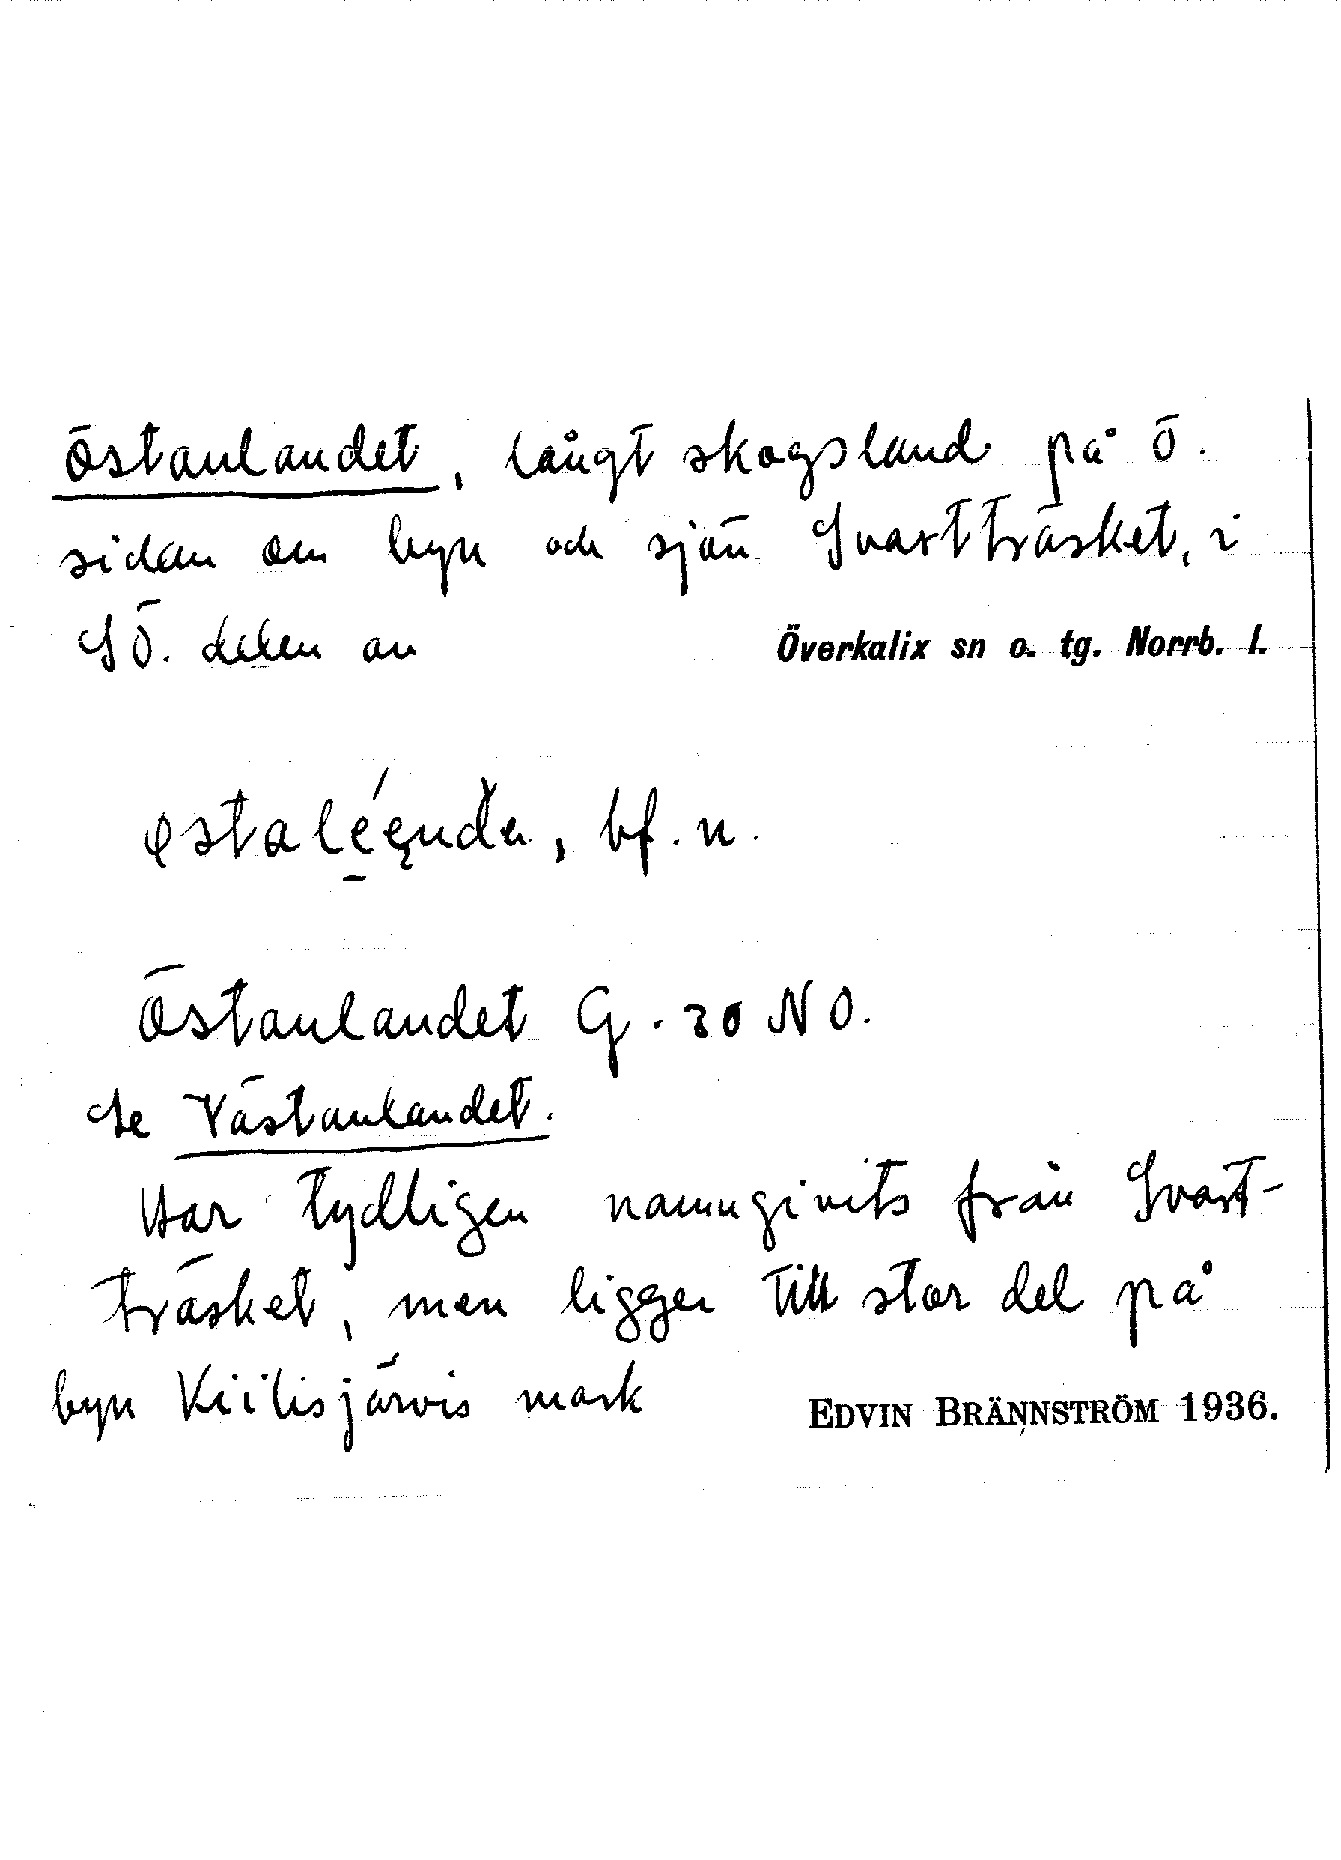 Östanlandet, långt skogsland på Ö.
sidan om byn och sjön Svartträsket, i
SÖ. delen av Överkalix sn o. tg. Norrb. l.
bf. n.
Östanlandet G. 30 NO.
Se Västanlandet.
Har tydligen namngivits från Svart-
träsket, men ligger till stor del på
byn Kiilisjärvis mark EDVIN BRÄNNSTRÖM 1936.